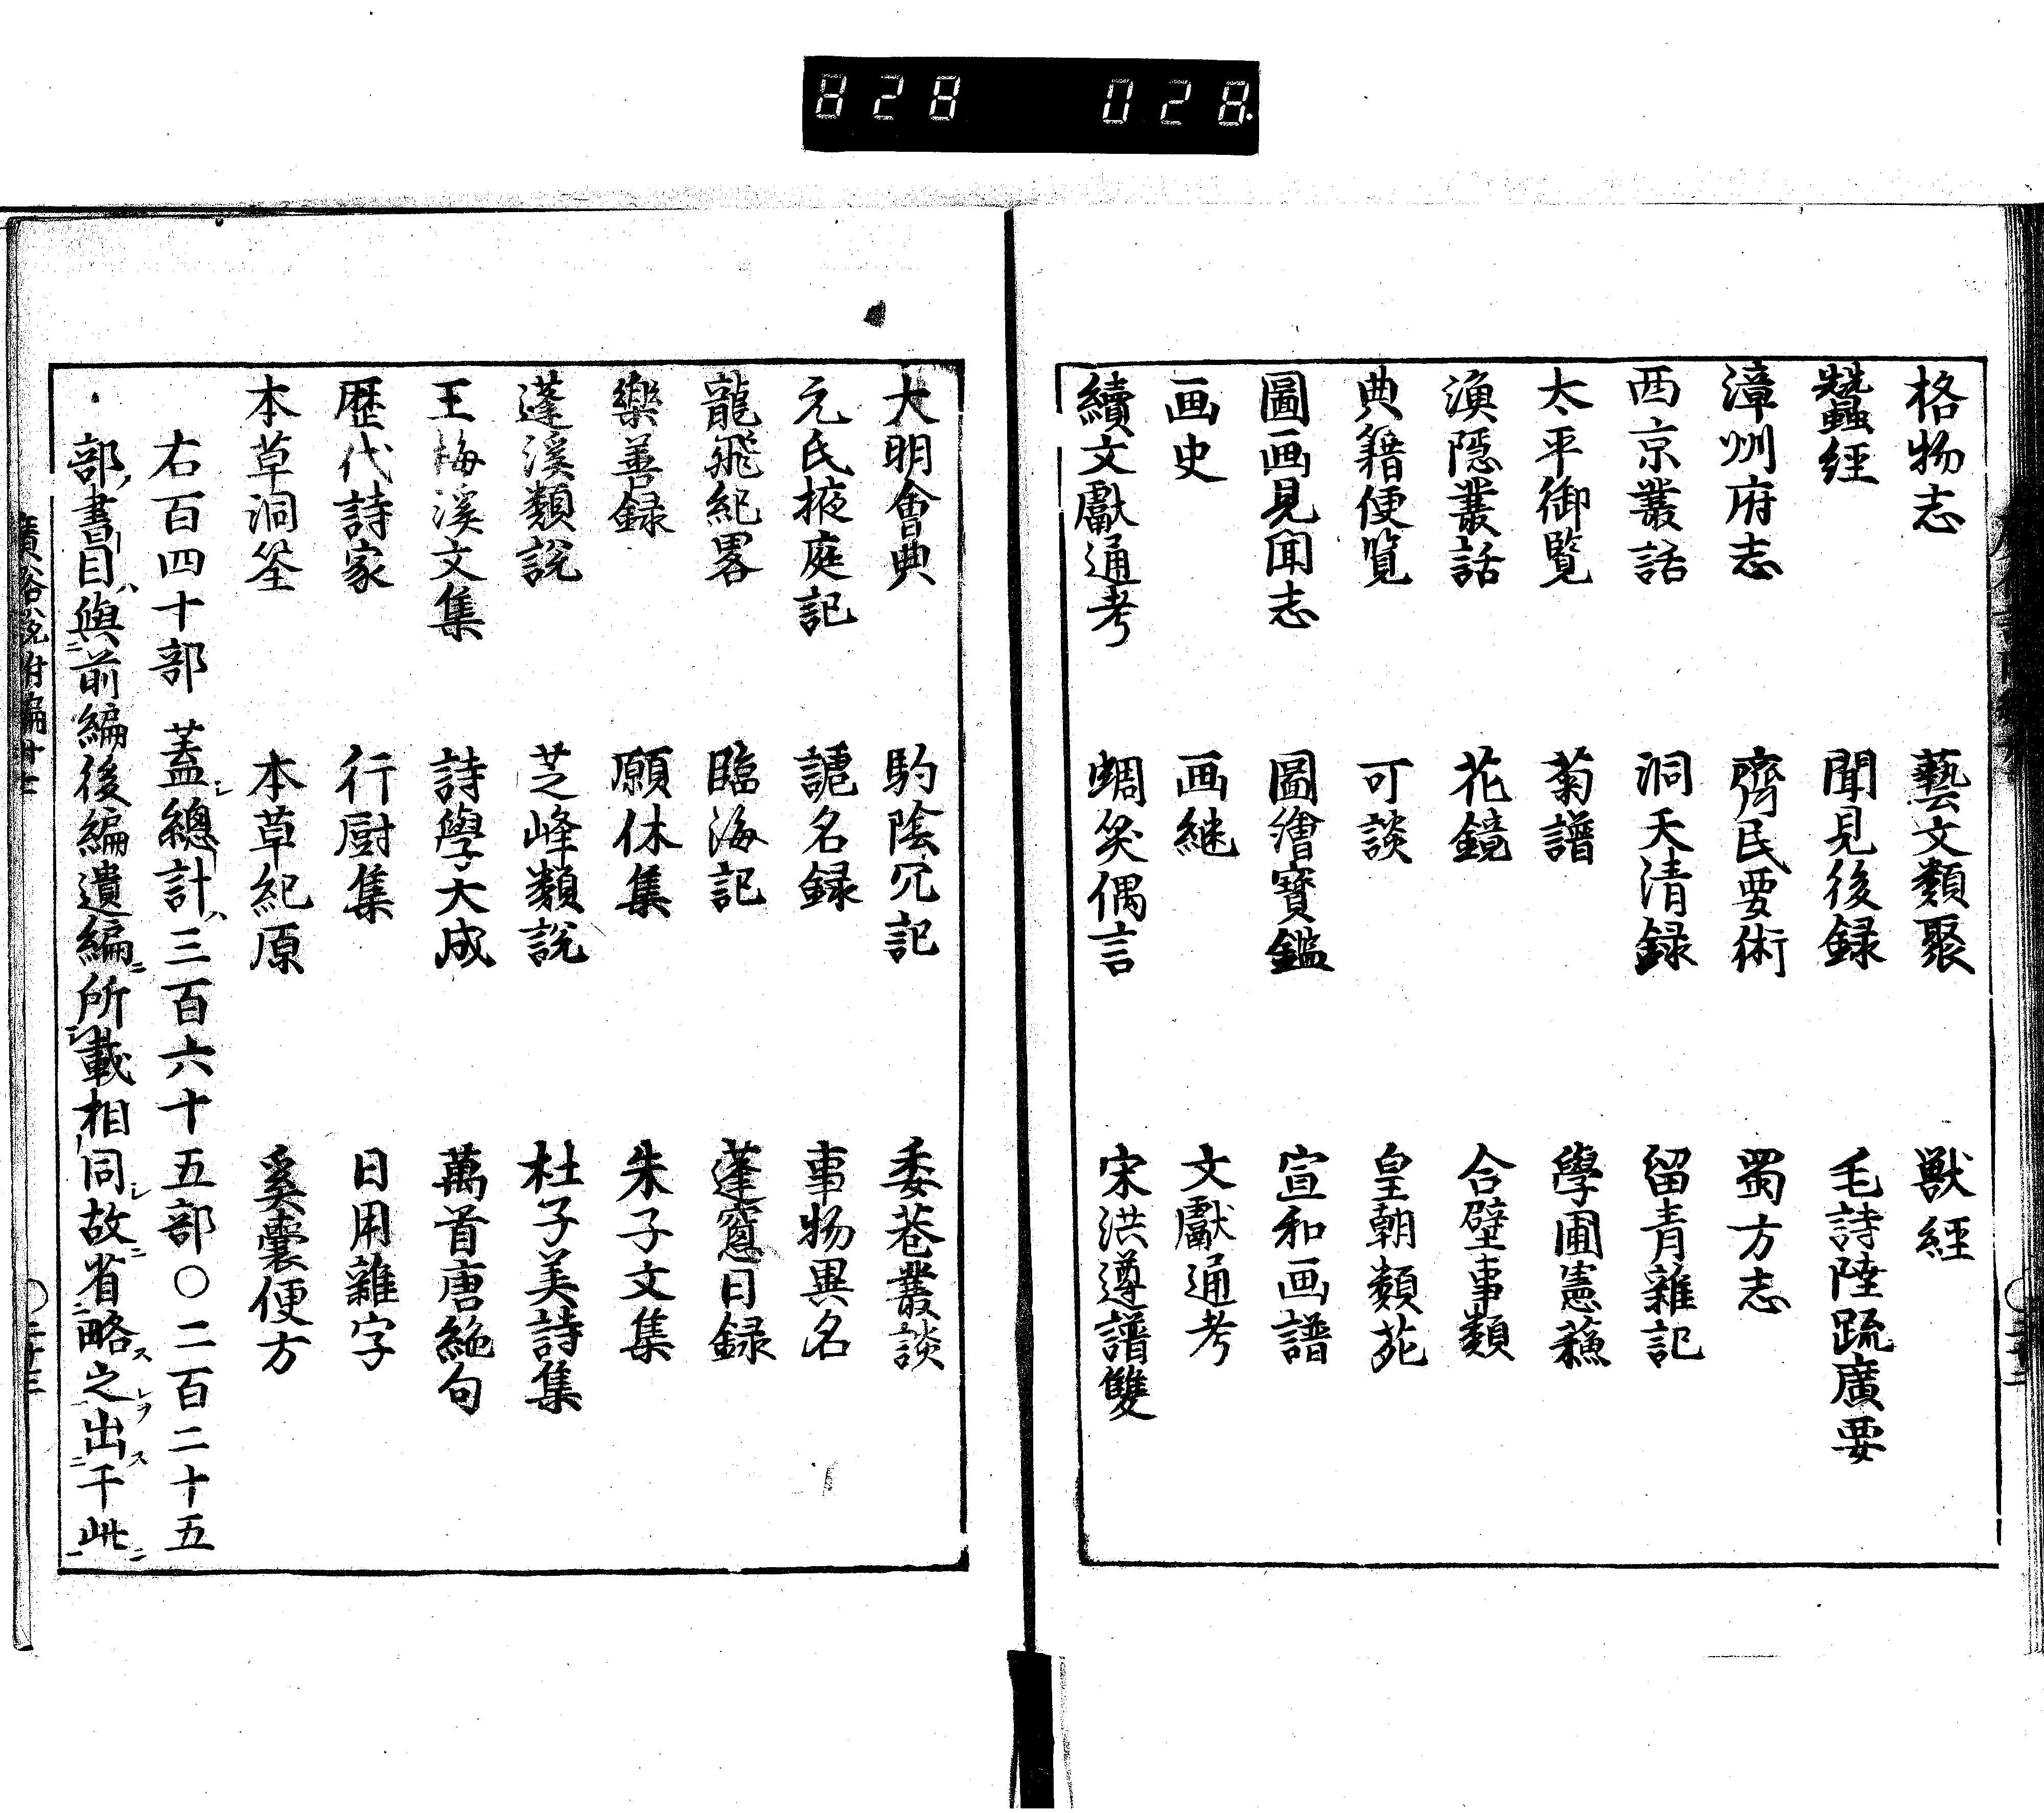 828 028
格物志 藝文類聚 獣經
蠶經 聞見後録 毛詩陸䟽廣要
漳州府志 齊民要術 蜀方志
西京叢話 洞天清録 留青雜記
太平御覧 菊譜 學圃憲蘓
漁隠叢話 花鏡 合璧事類
典籍便覧 可談 皇朝類苑
圖画見聞志 圖繪寳鑑 宣和画譜
画史 画継 文獻通考
續文獻通考 蜩笑偶言 宋洪遵譜雙
大明會典 駒陰冗記 委巷叢談
元氏掖庭記 謔名録 事物異名
龍飛紀畧 臨海記 蓬窓日録
樂善録 願休集 朱子文集
蓬溪類説 芝峰類説 杜子美詩集
王梅溪文集 詩學大成 萬首唐絶句
歴代詩家 行厨集 日用雜字
本草洞筌 本草紀原 奚囊便方
右百四十部 蓋總計ハ三百六十五部〇二百二十五
部ノ書目ハ與前編後編遺編所載相同故省略之出于此
廣俗説附編